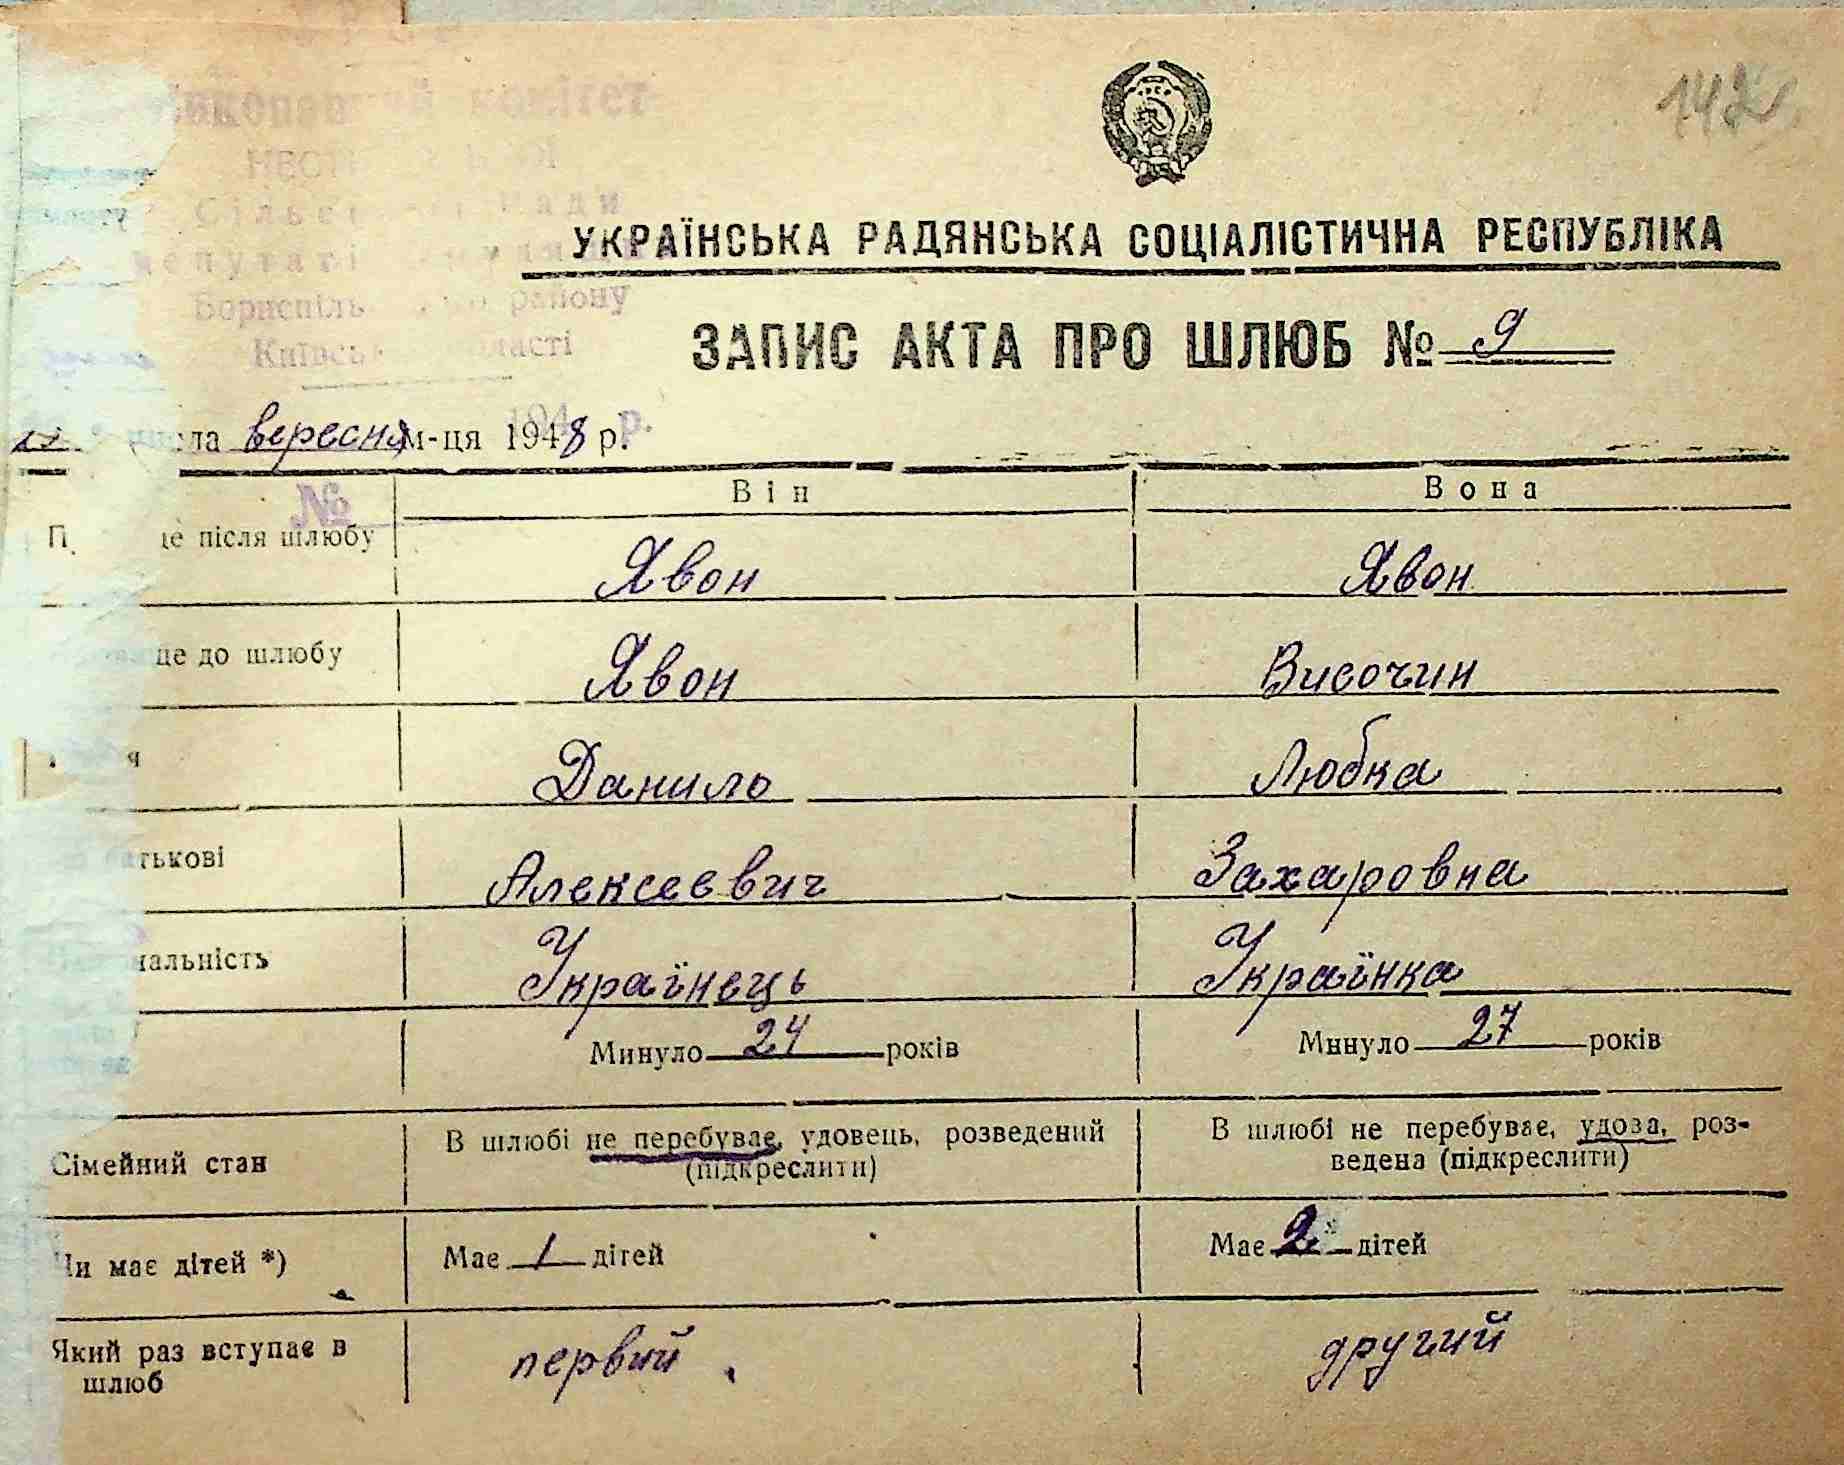 комітет
Сільс
Бориспіль району
Київсь
УКРАЇНСЬКА РАДЯНСЬКА СОЦІАЛІСТИЧНА РЕСПУБЛІКА
ЗАПИС АКТА ПРО ШЛЮБ № 9
вересня м-ця 1948 р.
№
Він Вона
після шлюбу Явон Явон
до шлюбу Явон Височин
Данило Любка
Алексеевич Захаровна
Українець Українка
Минуло 24 років Минуло 27 років
Сімейний стан
В шлюбі не перебуває, удовець, розведений
(підкреслити)
В шлюбі не перебуває, удова, роз-
ведена (підкреслити)
Чи має дітей *) Має 1 дітей Має 2 дітей
Який раз вступає в
шлюб
первий другий